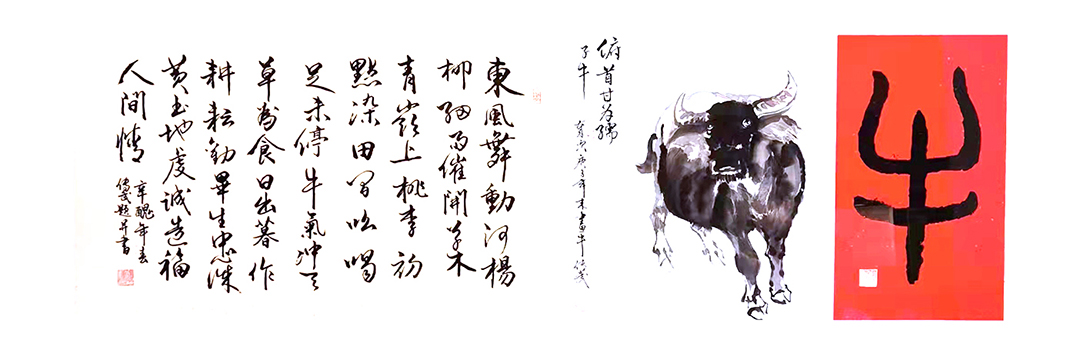 牛
俯首甘为孺
子牛
庚子年末畫牛
東風舞動河楊
柳細雨催開草木
青嶺上桃李初
點染田间吆喝
足未停牛氣沖天
草為食日出暮作
耕耘勤畢生忠誠
黄土地虔诚造福
人間情
辛醜年春
題并書